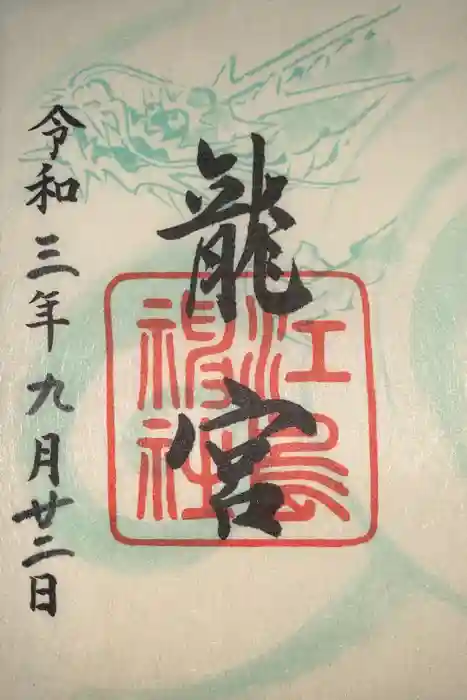 龍宮
江島
神社
令和三年九月廿二日